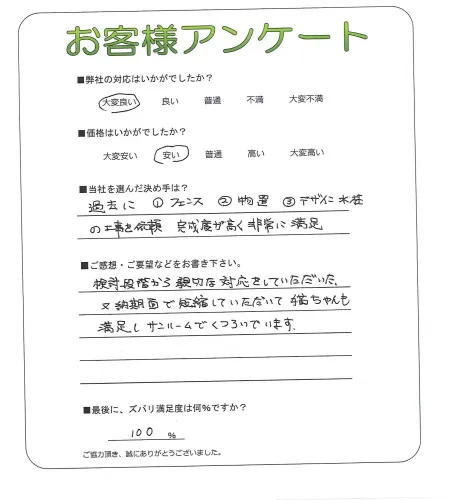 お客様アンケート
■弊社の対応はいかがでしたか?
大変良い 良い 普通 不満 大変不満
■価格はいかがでしたか?
大変安い 安い 普通 高い 大変高い
■当社を選んだ決め手は?
過去に ① フェンス ② 物置 ③ デザイン水栓
の工事を依頼 完成度が高く非常に満足
■ご感想・ご要望などをお書き下さい。
検討段階から親切な対応をしていただいた
又納期面で短縮していただいて猫ちゃんも
満足しサンルームでくつろいでいます.
■最後に、ズバリ満足度は何%ですか?
100 %
ご協力頂き、誠にありがとうございました。